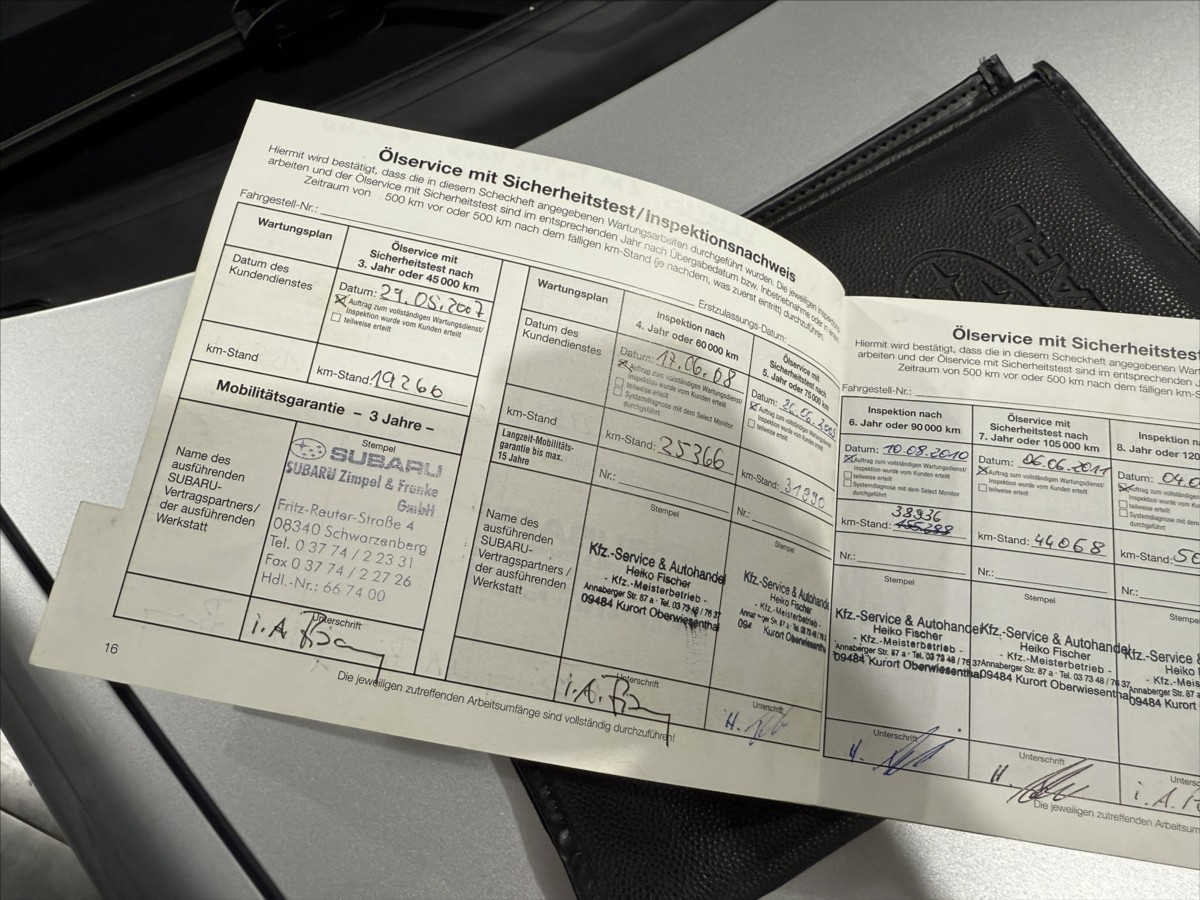 Ölservice mit Sicherheitstest/Inspektionsnachweis
Hiermit wird bestätigt, dass die in diesem Scheckheft angegebenen Wartungsarbeiten durchgeführt wurden. Die jeweiligen Inspektions-
arbeiten und der Ölservice mit Sicherheitstest sind im entsprechenden Jahr nach Übergabedatum bzw. Inbetriebnahme oder in einem
Zeitraum von 500 km vor oder 500 km nach dem fälligen km-Stand (je nachdem, was zuerst eintritt) durchzuführen.
Fahrgestell-Nr.:
Erstzulassungs-Datum:
Wartungsplan
Ölservice mit
Sicherheitstest nach
3. Jahr oder 45 000 km
Datum des
Kundendienstes
Datum: 29.05.2007
Auftrag zum vollständigen Wartungsdienst/
Inspektion wurde vom Kunden erteilt
teilweise erteilt
km-Stand
km-Stand: 19266
Mobilitätsgarantie – 3 Jahre –
Name des
ausführenden
SUBARU-
Vertragspartners/
der ausführenden
Werkstatt
Stempel
SUBARU
SUBARU Zimpel & Franke
GmbH
Fritz-Reuter-Straße 4
08340 Schwarzenberg
Tel. 0 37 74 / 2 23 31
Fax 0 37 74 / 2 27 26
Hdl.-Nr.: 66 74 00
Unterschrift
i.A.
16
Wartungsplan
Inspektion nach
4. Jahr oder 60 000 km
Ölservice mit
Sicherheitstest nach
5. Jahr oder 75 000 km
Datum des
Kundendienstes
Datum: 17.06.08
Auftrag zum vollständigen Wartungsdienst/
Inspektion wurde vom Kunden erteilt
teilweise erteilt
Systemdiagnose mit dem Select Monitor
durchgeführt
Datum: 26.06.
Auftrag zum vollständigen Wartungsdienst/
Inspektion wurde vom Kunden erteilt
teilweise erteilt
km-Stand
km-Stand: 25366
km-Stand: 31990
Langzeit-Mobilitäts-
garantie bis max.
15 Jahre
Nr.:
Nr.:
Name des
ausführenden
SUBARU-
Vertragspartners /
der ausführenden
Werkstatt
Stempel
Kfz.-Service & Autohandel
Heiko Fischer
- Kfz.-Meisterbetrieb -
Annaberger Str. 87 a · Tel. 03 73 48 / 76 37
09484 Kurort Oberwiesenthal
Stempel
Kfz.-Service & Autohande
Heiko Fischer
- Kfz.-Meisterbetrieb -
Annaberger Str. 87 a · Tel. 03 73 48
094 Kurort Oberwiesentha
Unterschrift
i.A.
Unterschrift
H.
Die jeweiligen zutreffenden Arbeitsumfänge sind vollständig durchzuführen!
Ölservice mit Sicherheitstest
Hiermit wird bestätigt, dass die in diesem Scheckheft angegebenen Wart
arbeiten und der Ölservice mit Sicherheitstest sind im entsprechenden Jahr nach
Zeitraum von 500 km vor oder 500 km nach dem fälligen km-S
Fahrgestell-Nr.:
Inspektion nach
6. Jahr oder 90 000 km
Ölservice mit
Sicherheitstest nach
7. Jahr oder 105 000 km
Inspektion n
8. Jahr oder 120
Datum: 10.08.2010
Auftrag zum vollständigen Wartungsdienst/
Inspektion wurde vom Kunden erteilt
teilweise erteilt
Systemdiagnose mit dem Select Monitor
durchgeführt
Datum: 06.06.2011
Auftrag zum vollständigen Wartungsdienst/
Inspektion wurde vom Kunden erteilt
teilweise erteilt
Datum: 04.0
Auftrag zum vollständigen
Inspektion wurde vom
teilweise erteilt
Systemdiagnose mit dem
durchgeführt
38936
km-Stand:
km-Stand: 44068
km-Stand: 50
Nr.:
Nr.:
Nr.:
Stempel
Kfz.-Service & Autohandel
Heiko Fischer
- Kfz.-Meisterbetrieb -
Annaberger Str. 87 a · Tel. 03 73 48 / 76 37
09484 Kurort Oberwiesenthal
Stempel
Kfz.-Service & Autohandel
Heiko Fischer
- Kfz.-Meisterbetrieb -
Annaberger Str. 87 a · Tel. 03 73 48 / 76 37
09484 Kurort Oberwiesenthal
Stempel
Kfz.-Service &
Heiko
- Kfz.-Meis
Annaberger Str. 87
09484 Kurort
Unterschrift
H.
Unterschrift
H.
Unters
i.A.
Die jeweiligen zutreffenden Arbeitsum